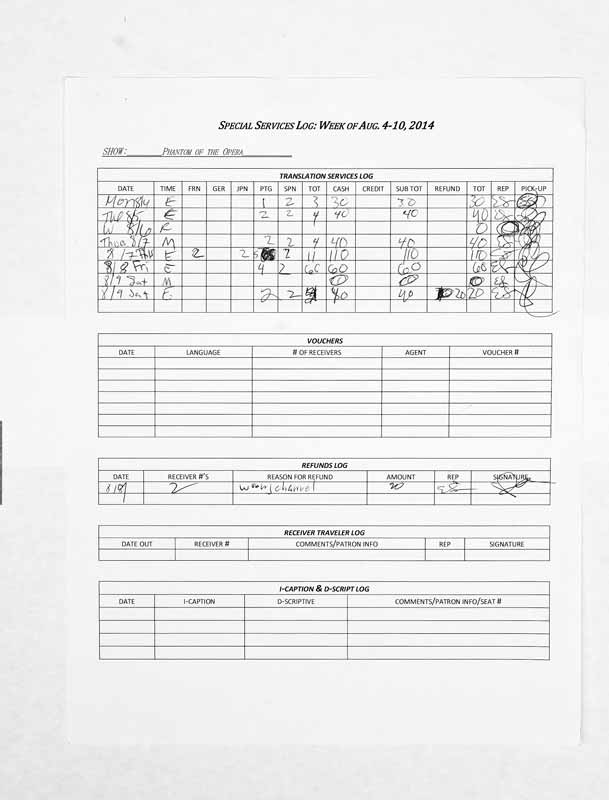 SPECIAL SERVICES LOG: WEEK OF AUG. 4-10, 2014
SHOW: PHANTOM OF THE OPERA
TRANSLATION SERVICES LOG
DATE TIME FRN GER JPN PTG SPN TOT CASH CREDIT SUB TOT REFUND TOT REP PICK-UP
Mon 8/4 E 1 2 3 30 30 30 ES
Tue 8/5 E 2 2 4 40 40 40 ES
W 8/6 0
Thur 8/7 M 2 2 4 40 40 40 ES
8/7 Thu E 2 2 5 2 11 110 110 110 ES
8/8 Fri E 4 2 60 60 60 ES
8/9 Sat M 0 0 0 ES
8/9 Sat E 2 2 40 40 20 20 ES
VOUCHERS
DATE LANGUAGE # OF RECEIVERS AGENT VOUCHER #
REFUNDS LOG
DATE RECEIVER #'S REASON FOR REFUND AMOUNT REP SIGNATURE
8/9 2 wrong channel 20 ES
RECEIVER TRAVELER LOG
DATE OUT RECEIVER # COMMENTS/PATRON INFO REP SIGNATURE
I-CAPTION & D-SCRIPT LOG
DATE I-CAPTION D-SCRIPTIVE COMMENTS/PATRON INFO/SEAT #